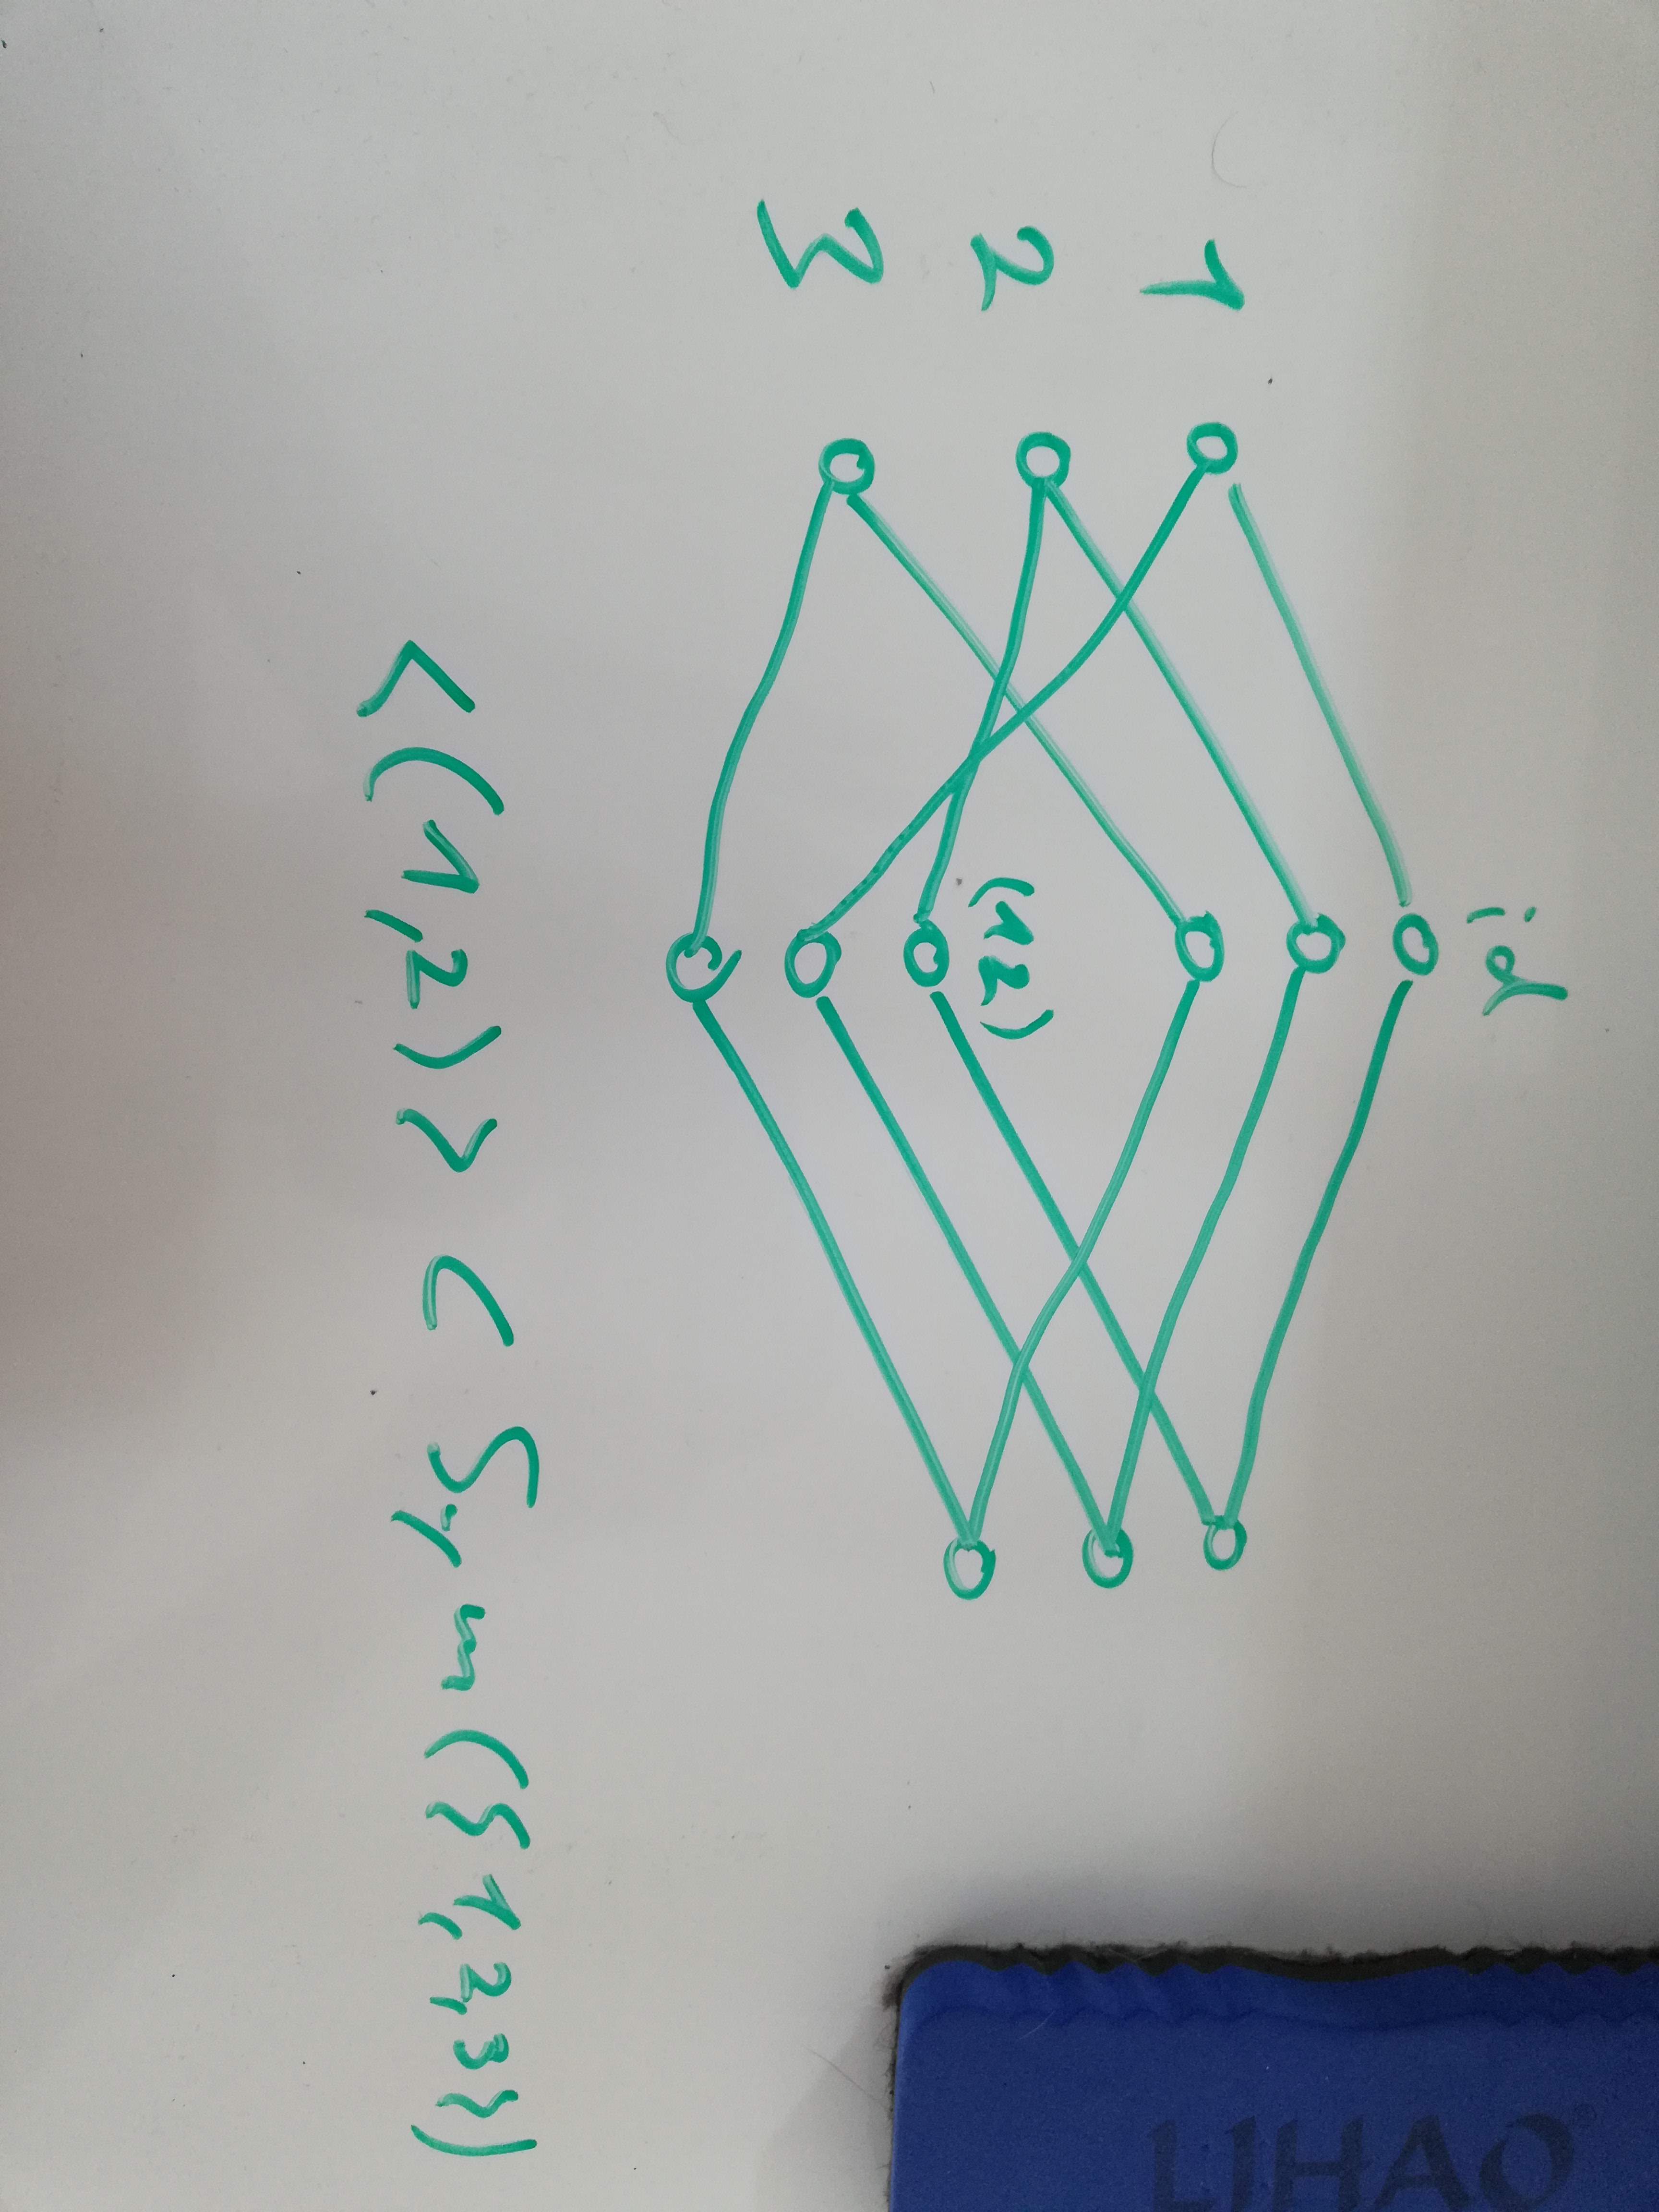 id
1
2
(12)
3
<(1,2)> < Sym({1,2,3})
LIHAO